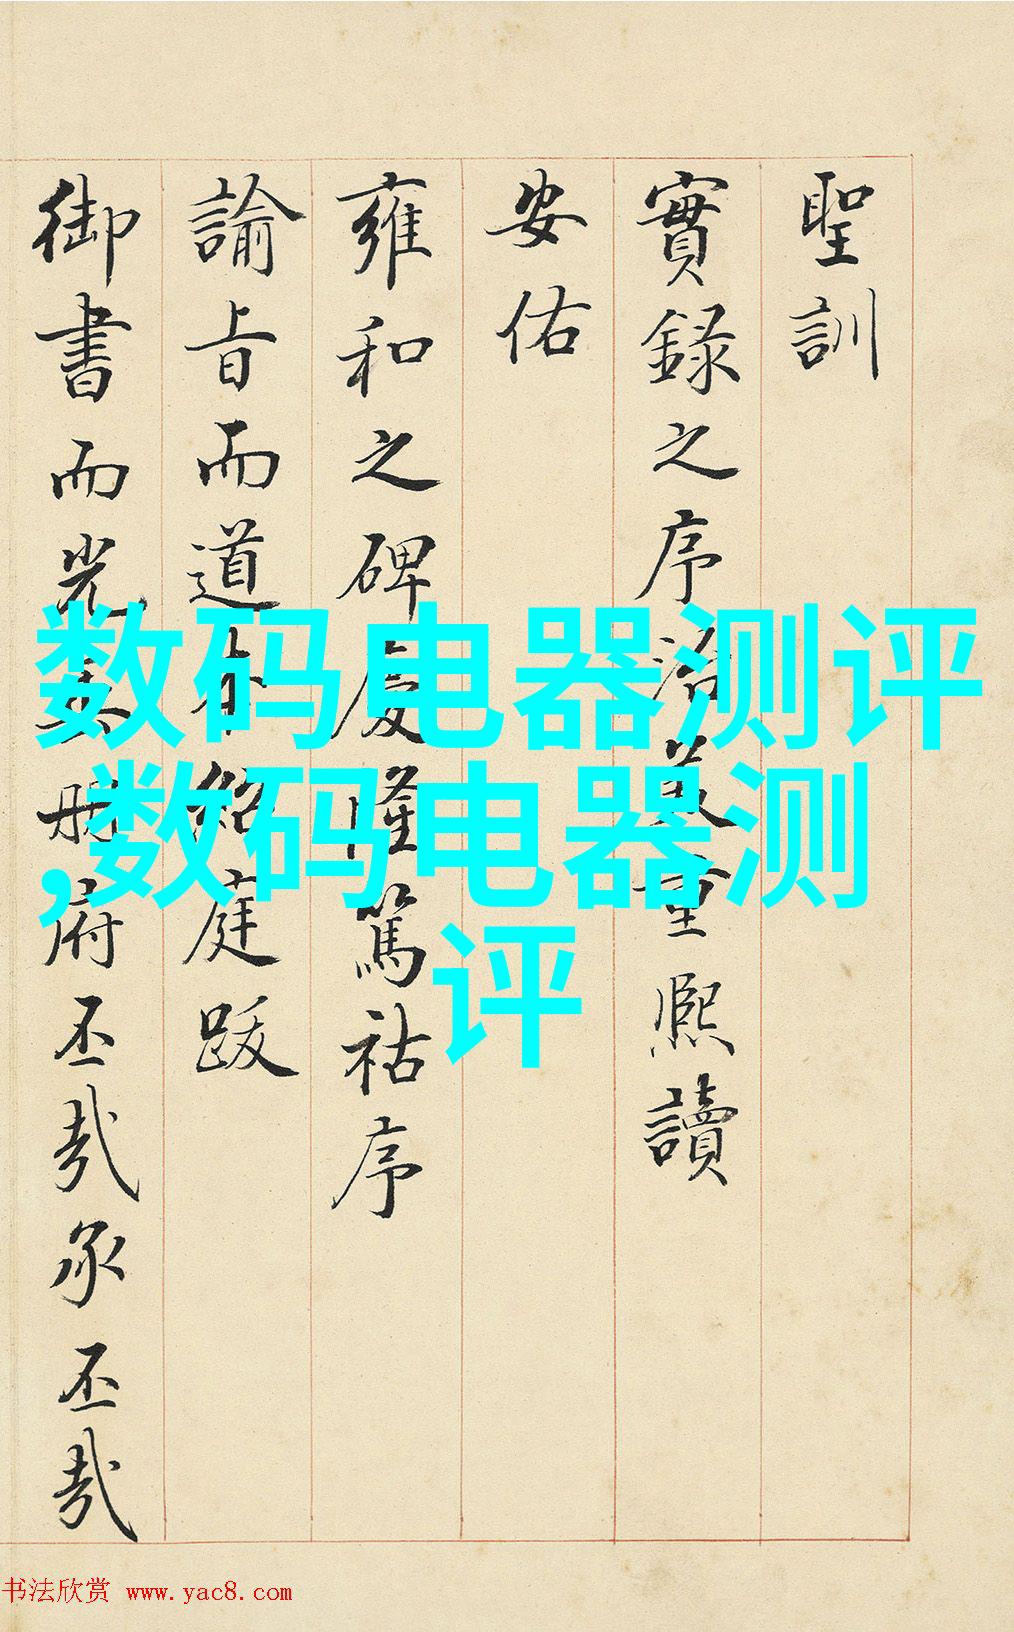 聖訓
實錄之序洽義重熙讀
安佑
雍和之碑慶隆篤祜序
諭旨而道光紹庭跋
御書而光冊府丕哉承丕哉
数码电器测评
,数码电器测
评
书法欣赏 www.yac8.com